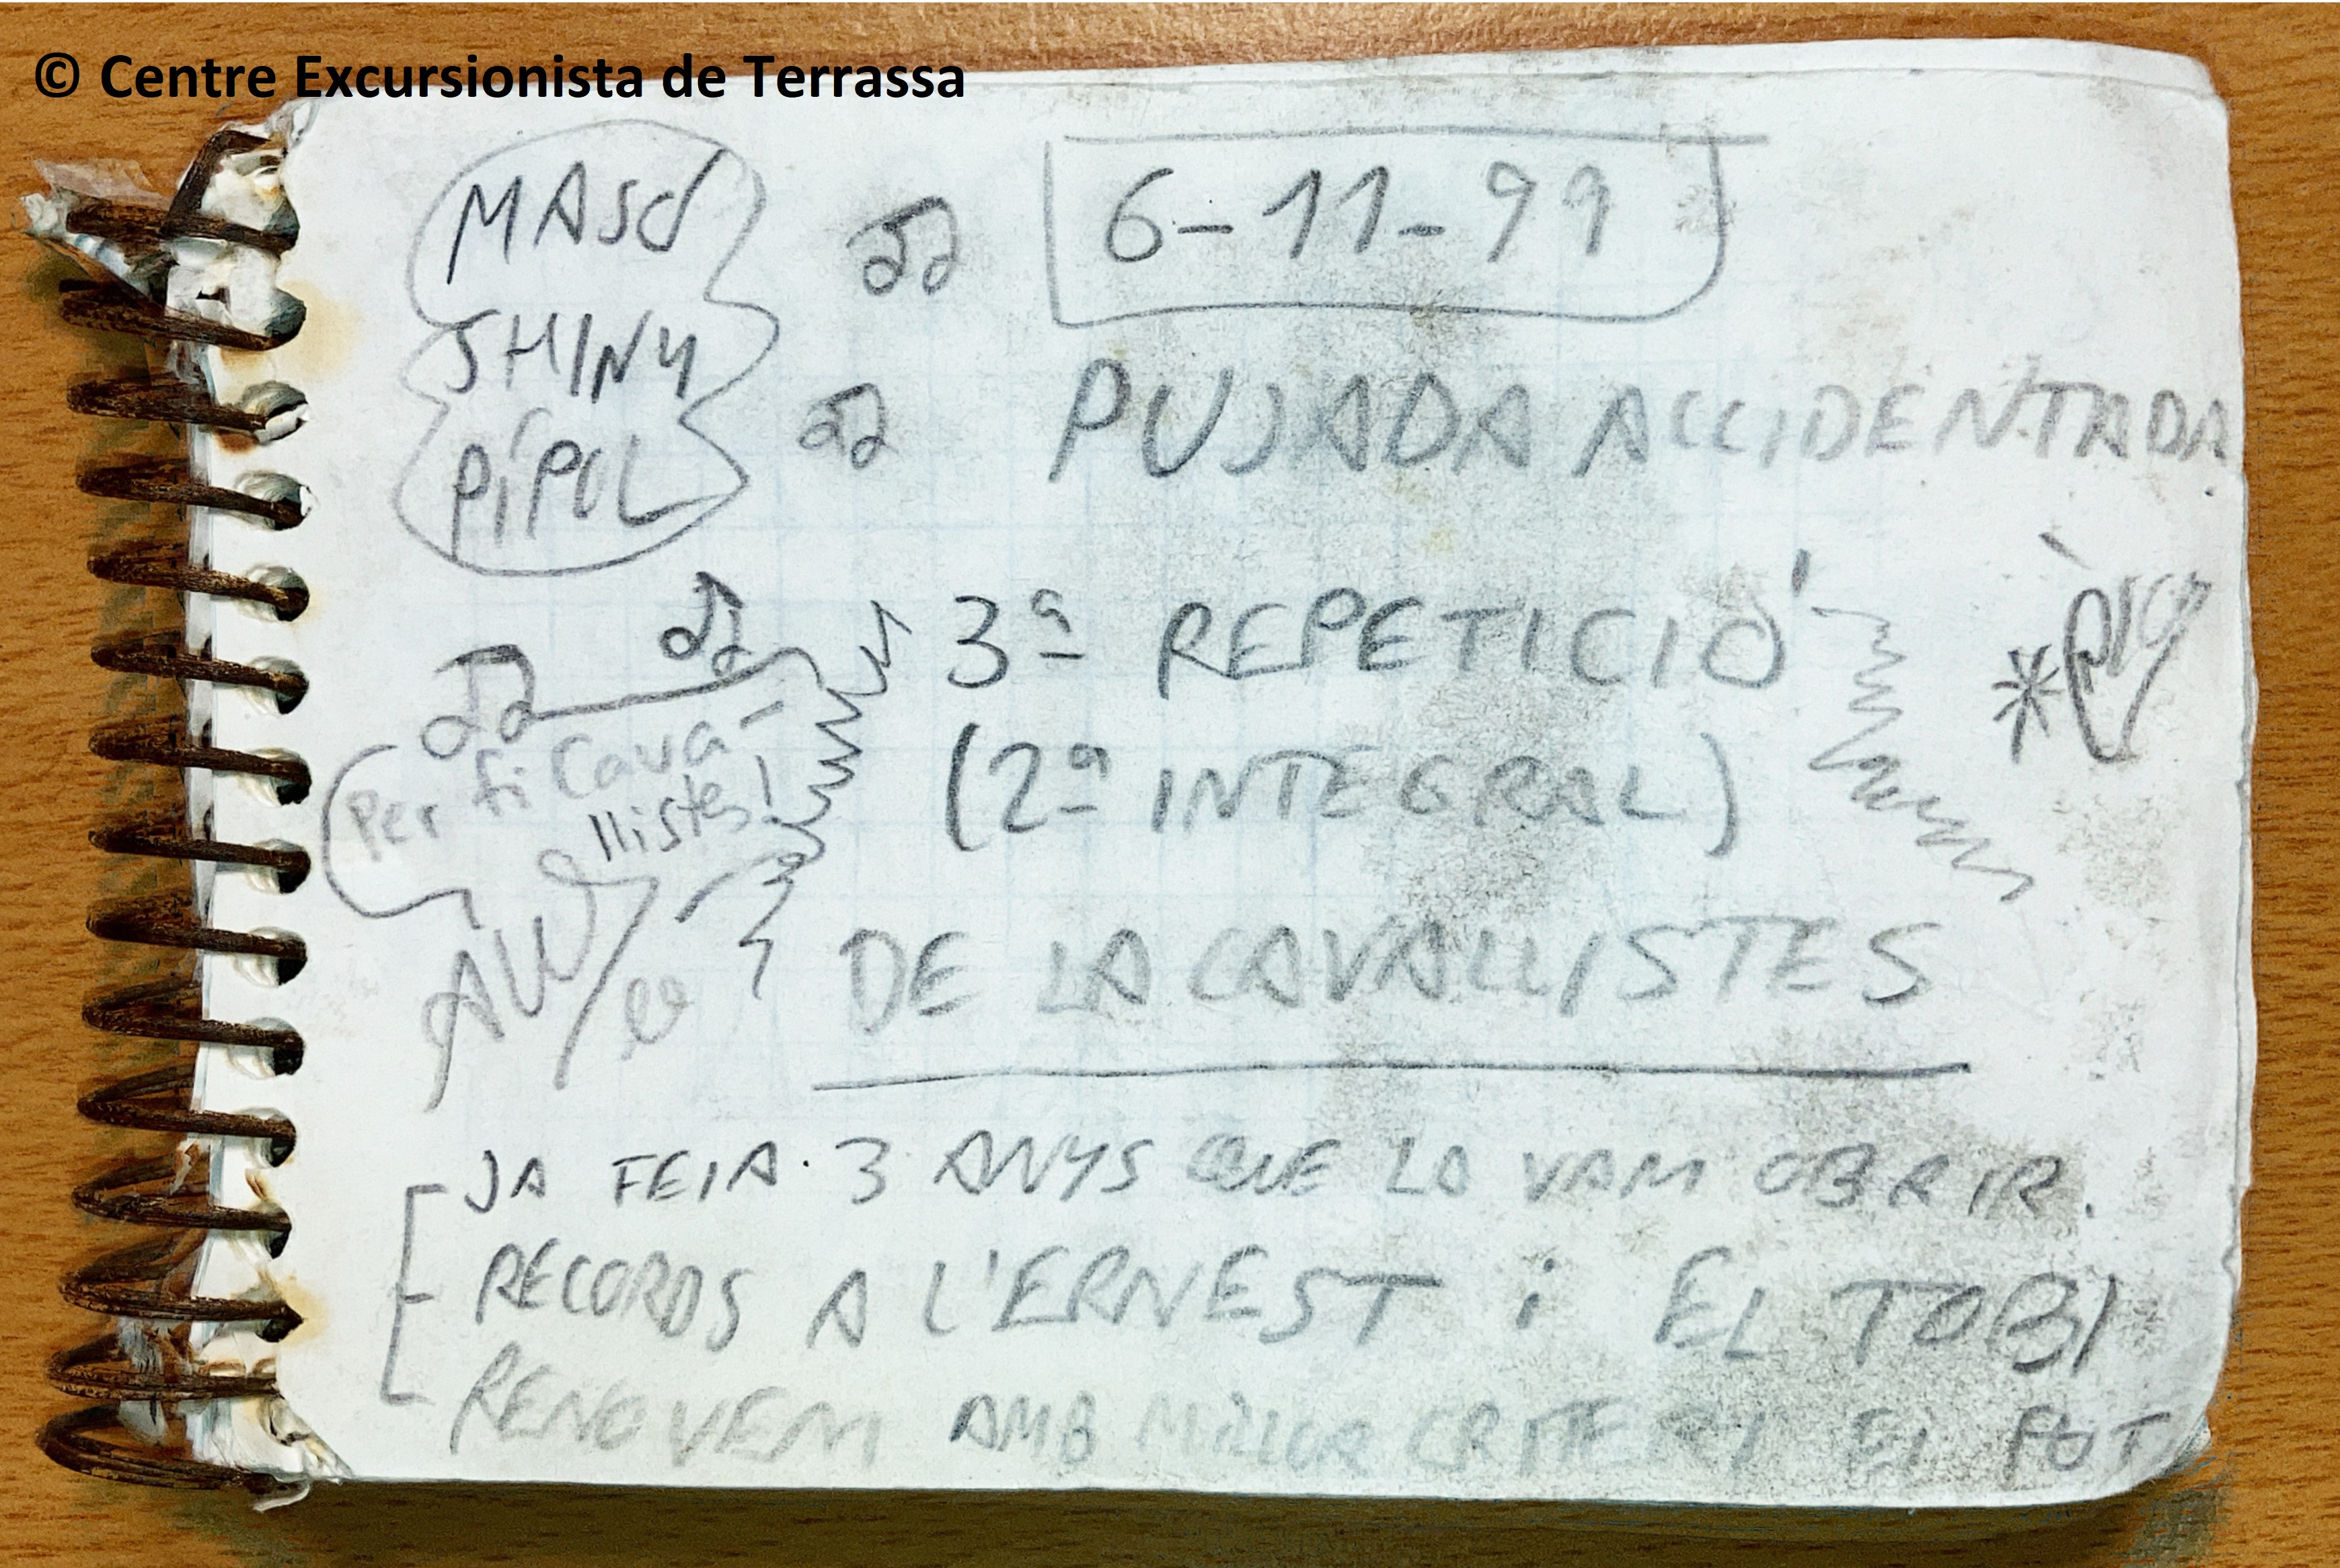 © Centre Excursionista de Terrassa
6-11-99
SHINY
PÍPOL
PUJADA ACCIDENTADA
3ª REPETICIÓ
(2ª INTEGRAL)
DE LA CAVALLISTES
Per fi Cava-
llistes!
JA FEIA 3 ANYS QUE LA VAM OBRIR.
RECORDS A L'ERNEST i EL TOBI
RENOVEM AMB MILLOR CRITERI EL POT